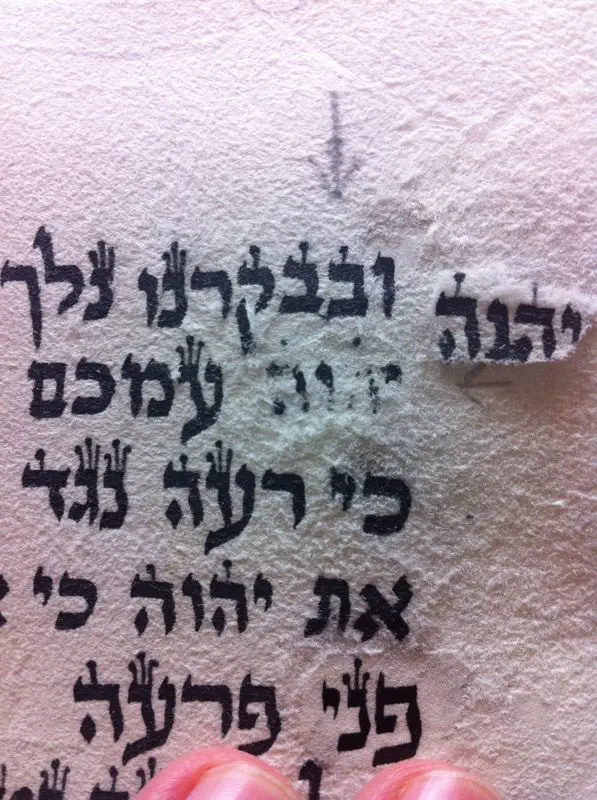 יהוה
ובבקרנו נלך
יהוה עמכם
כי רעה נגד
את יהוה כי
פני פרעה